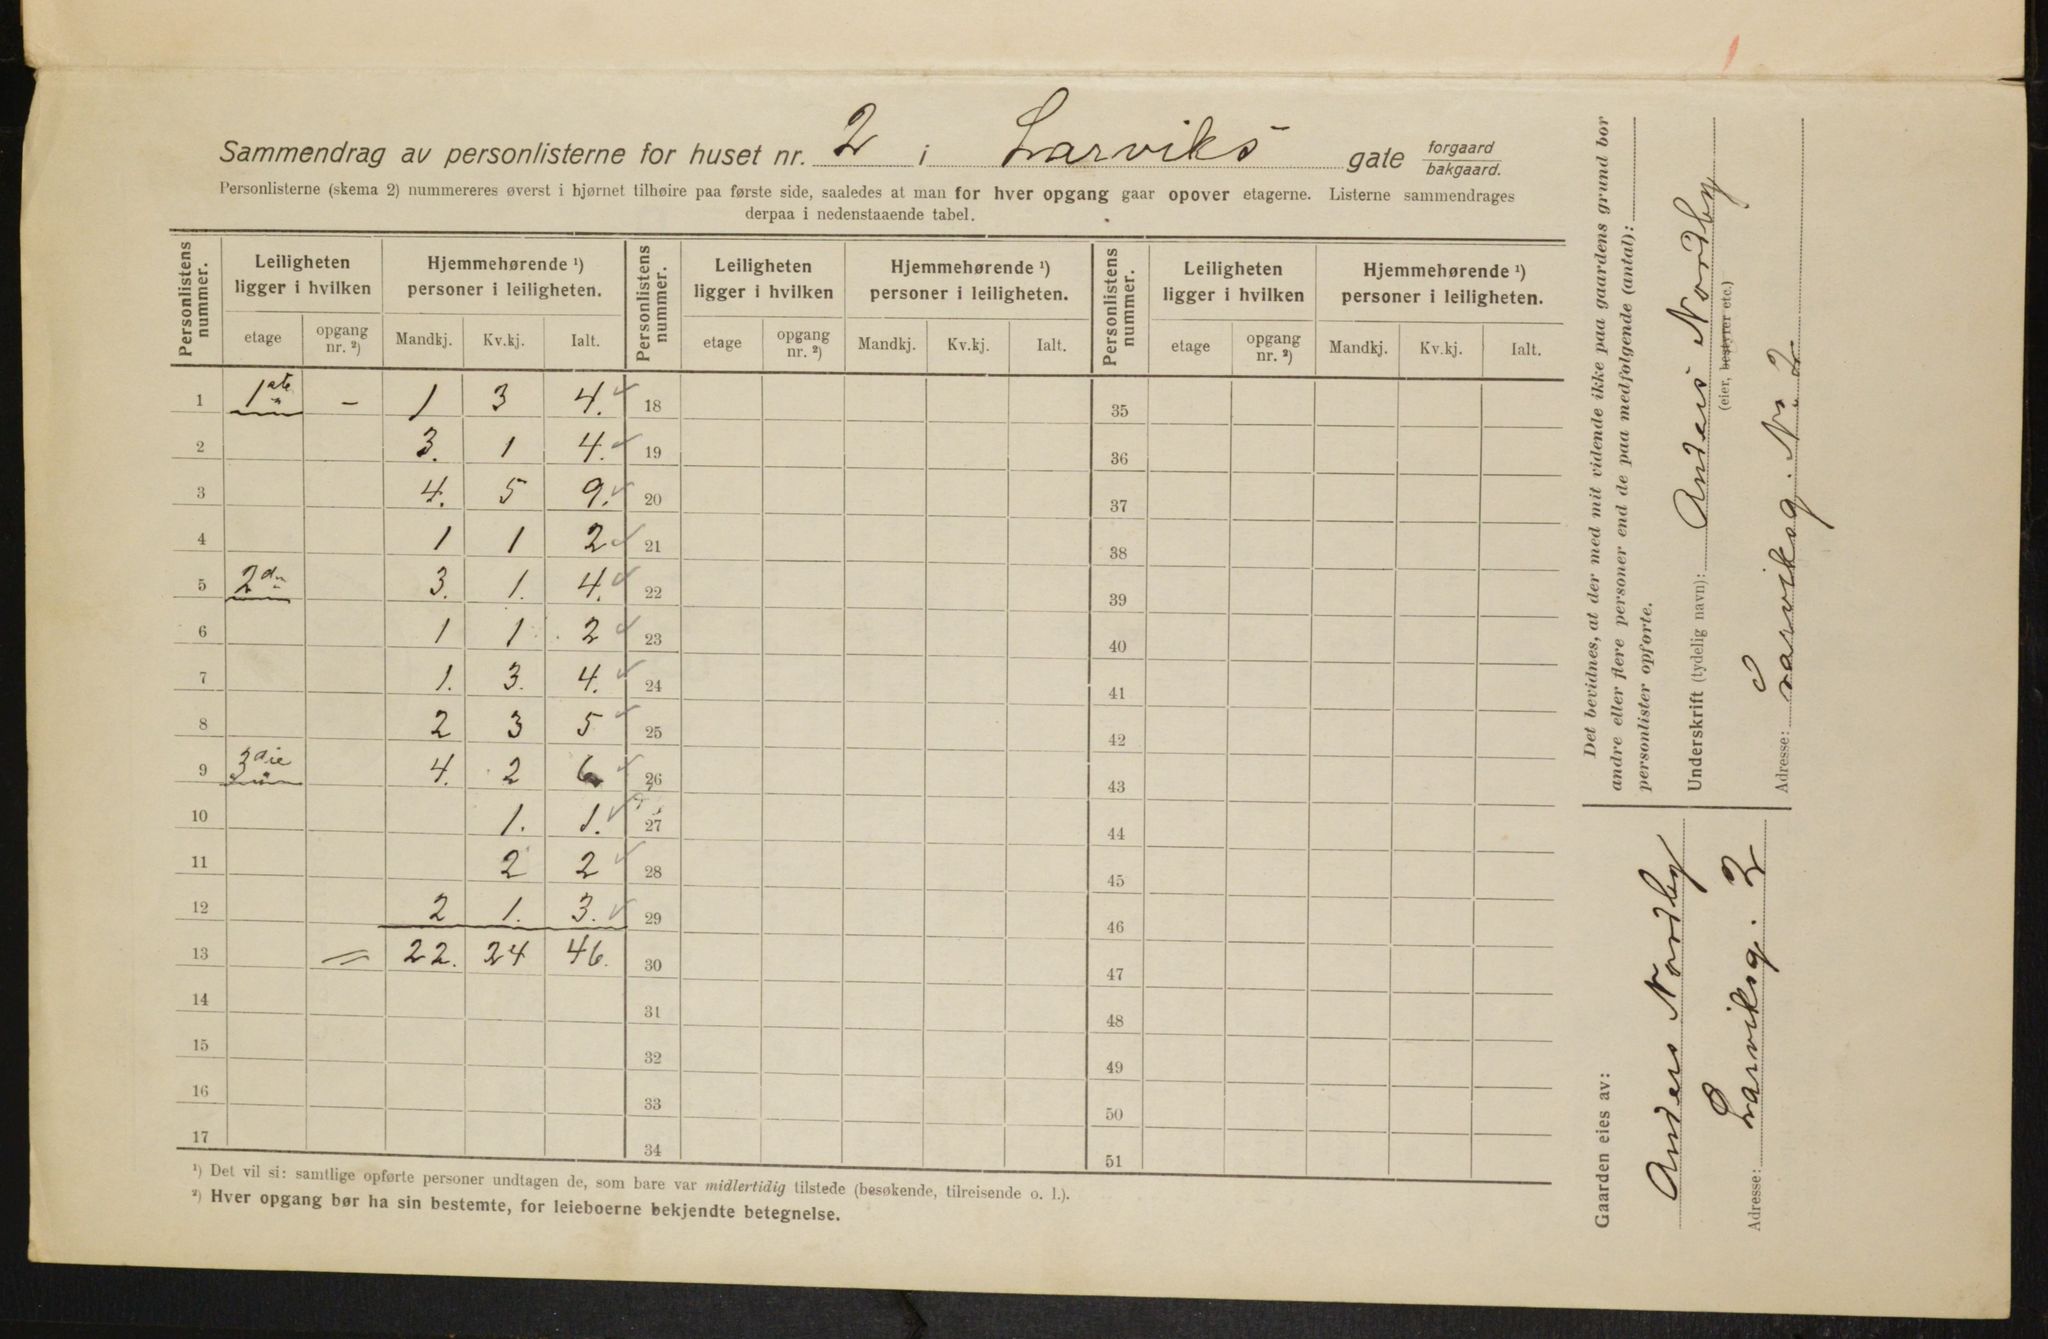 Sammendrag av personlisterne for huset nr. 2 i Larviks gate forgaard bakgaard.
Personlisterne (skema 2) nummereres øverst i hjørnet tilhøire paa første side, saaledes at man for hver opgang gaar opover etagerne. Listerne sammendrages
derpaa i nedenstaaende tabel.
Personlistens nummer. Leiligheten ligger i hvilken Hjemmehørende ¹) personer i leiligheten. Personlistens nummer. Leiligheten ligger i hvilken Hjemmehørende ¹) personer i leiligheten. Personlistens nummer. Leiligheten ligger i hvilken Hjemmehørende ¹) personer i leiligheten.
etage opgang nr. ²) Mandkj. Kv.kj. Ialt. etage opgang nr. ²) Mandkj. Kv.kj. Ialt. etage opgang nr. ²) Mandkj. Kv.kj. Ialt.
1 1ste – 1 3 4. 18 35
2 3. 1 4. 19 36
3 4. 5 9. 20 37
4 1 1 2 21 38
5 2den 3. 1. 4. 22 39
6 1 1 2 23 40
7 1. 3. 4. 24 41
8 2 3 5 25 42
9 3die 4. 2 6 26 43
10 1. 1. 27 44
11 2 2 28 45
12 2 1. 3. 29 46
13 = 22. 24 46. 30 47
14 31 48
15 32 49
16 33 50
17 34 51
¹) Det vil si: samtlige opførte personer undtagen de, som bare var midlertidig tilstede (besøkende, tilreisende o. l.).
²) Hver opgang bør ha sin bestemte, for leieboerne bekjendte betegnelse.
Det bevidnes, at der med mit vidende ikke paa gaardens grund bor
andre eller flere personer end de paa medfølgende (antal):
personlister opførte.
Underskrift (tydelig navn): Anders Nordby
(eier, bestyrer etc.)
Adresse: Larviksg. No. 2
Gaarden eies av:
Anders Nordby
Adresse: Larviksg. 2